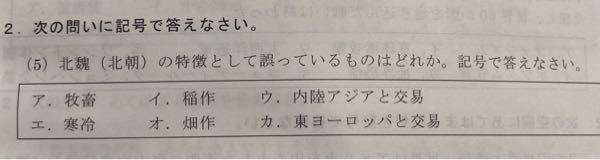 2．次の問いに記号で答えなさい。
(5) 北魏（北朝）の特徴として誤っているものはどれか。記号で答えなさい。
ア．牧畜　イ．稲作　ウ．内陸アジアと交易
エ．寒冷　オ．畑作　カ．東ヨーロッパと交易